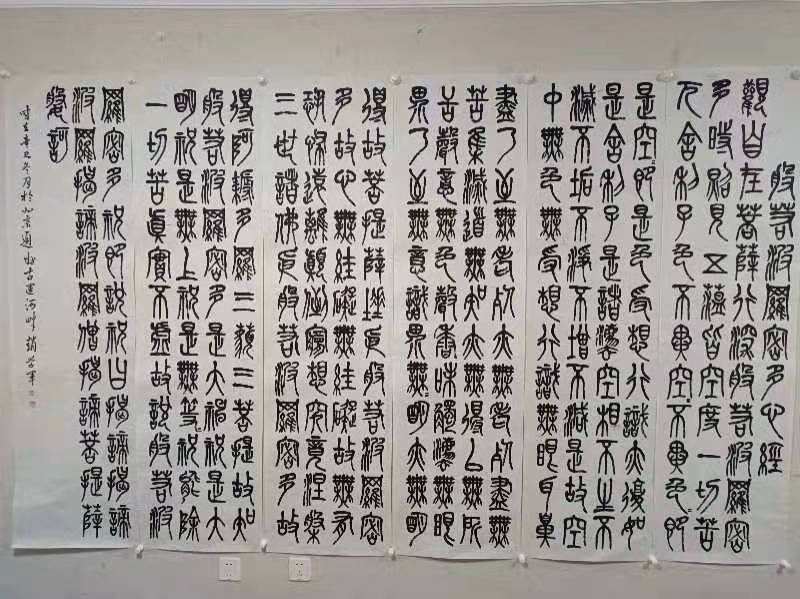 般若波羅密多心經
觀自在菩薩行深般若波羅密
多時照見五蘊皆空度一切苦
厄舍利子色不異空〻不異色〻即
是空〻即是色受想行識亦復如
是舍利子是諸法空相不生不
滅不垢不淨不增不減是故空
中無色無受想行識無眼耳鼻
盡乃至無老死亦無老死盡無
苦集滅道無知亦無得以無所
舌聲意無色聲香味觸法無眼
界乃至無意識界無〻明亦無〻明
得故菩提薩埵依般若波羅密
多故心無罣礙無罣礙故無有
恐怖遠離顛倒夢想究竟涅槃
三世諸佛依般若波羅密多故
得阿耨多羅三藐三菩提故知
般若波羅密多是大神咒是大
明咒是無上咒是無等〻咒能除
一切苦真實不虛故說般若波
羅密多咒即說咒曰揭諦揭諦
波羅揭諦波羅僧揭諦菩提薩
婆訶
時在辛丑冬月於北京通州古運河畔